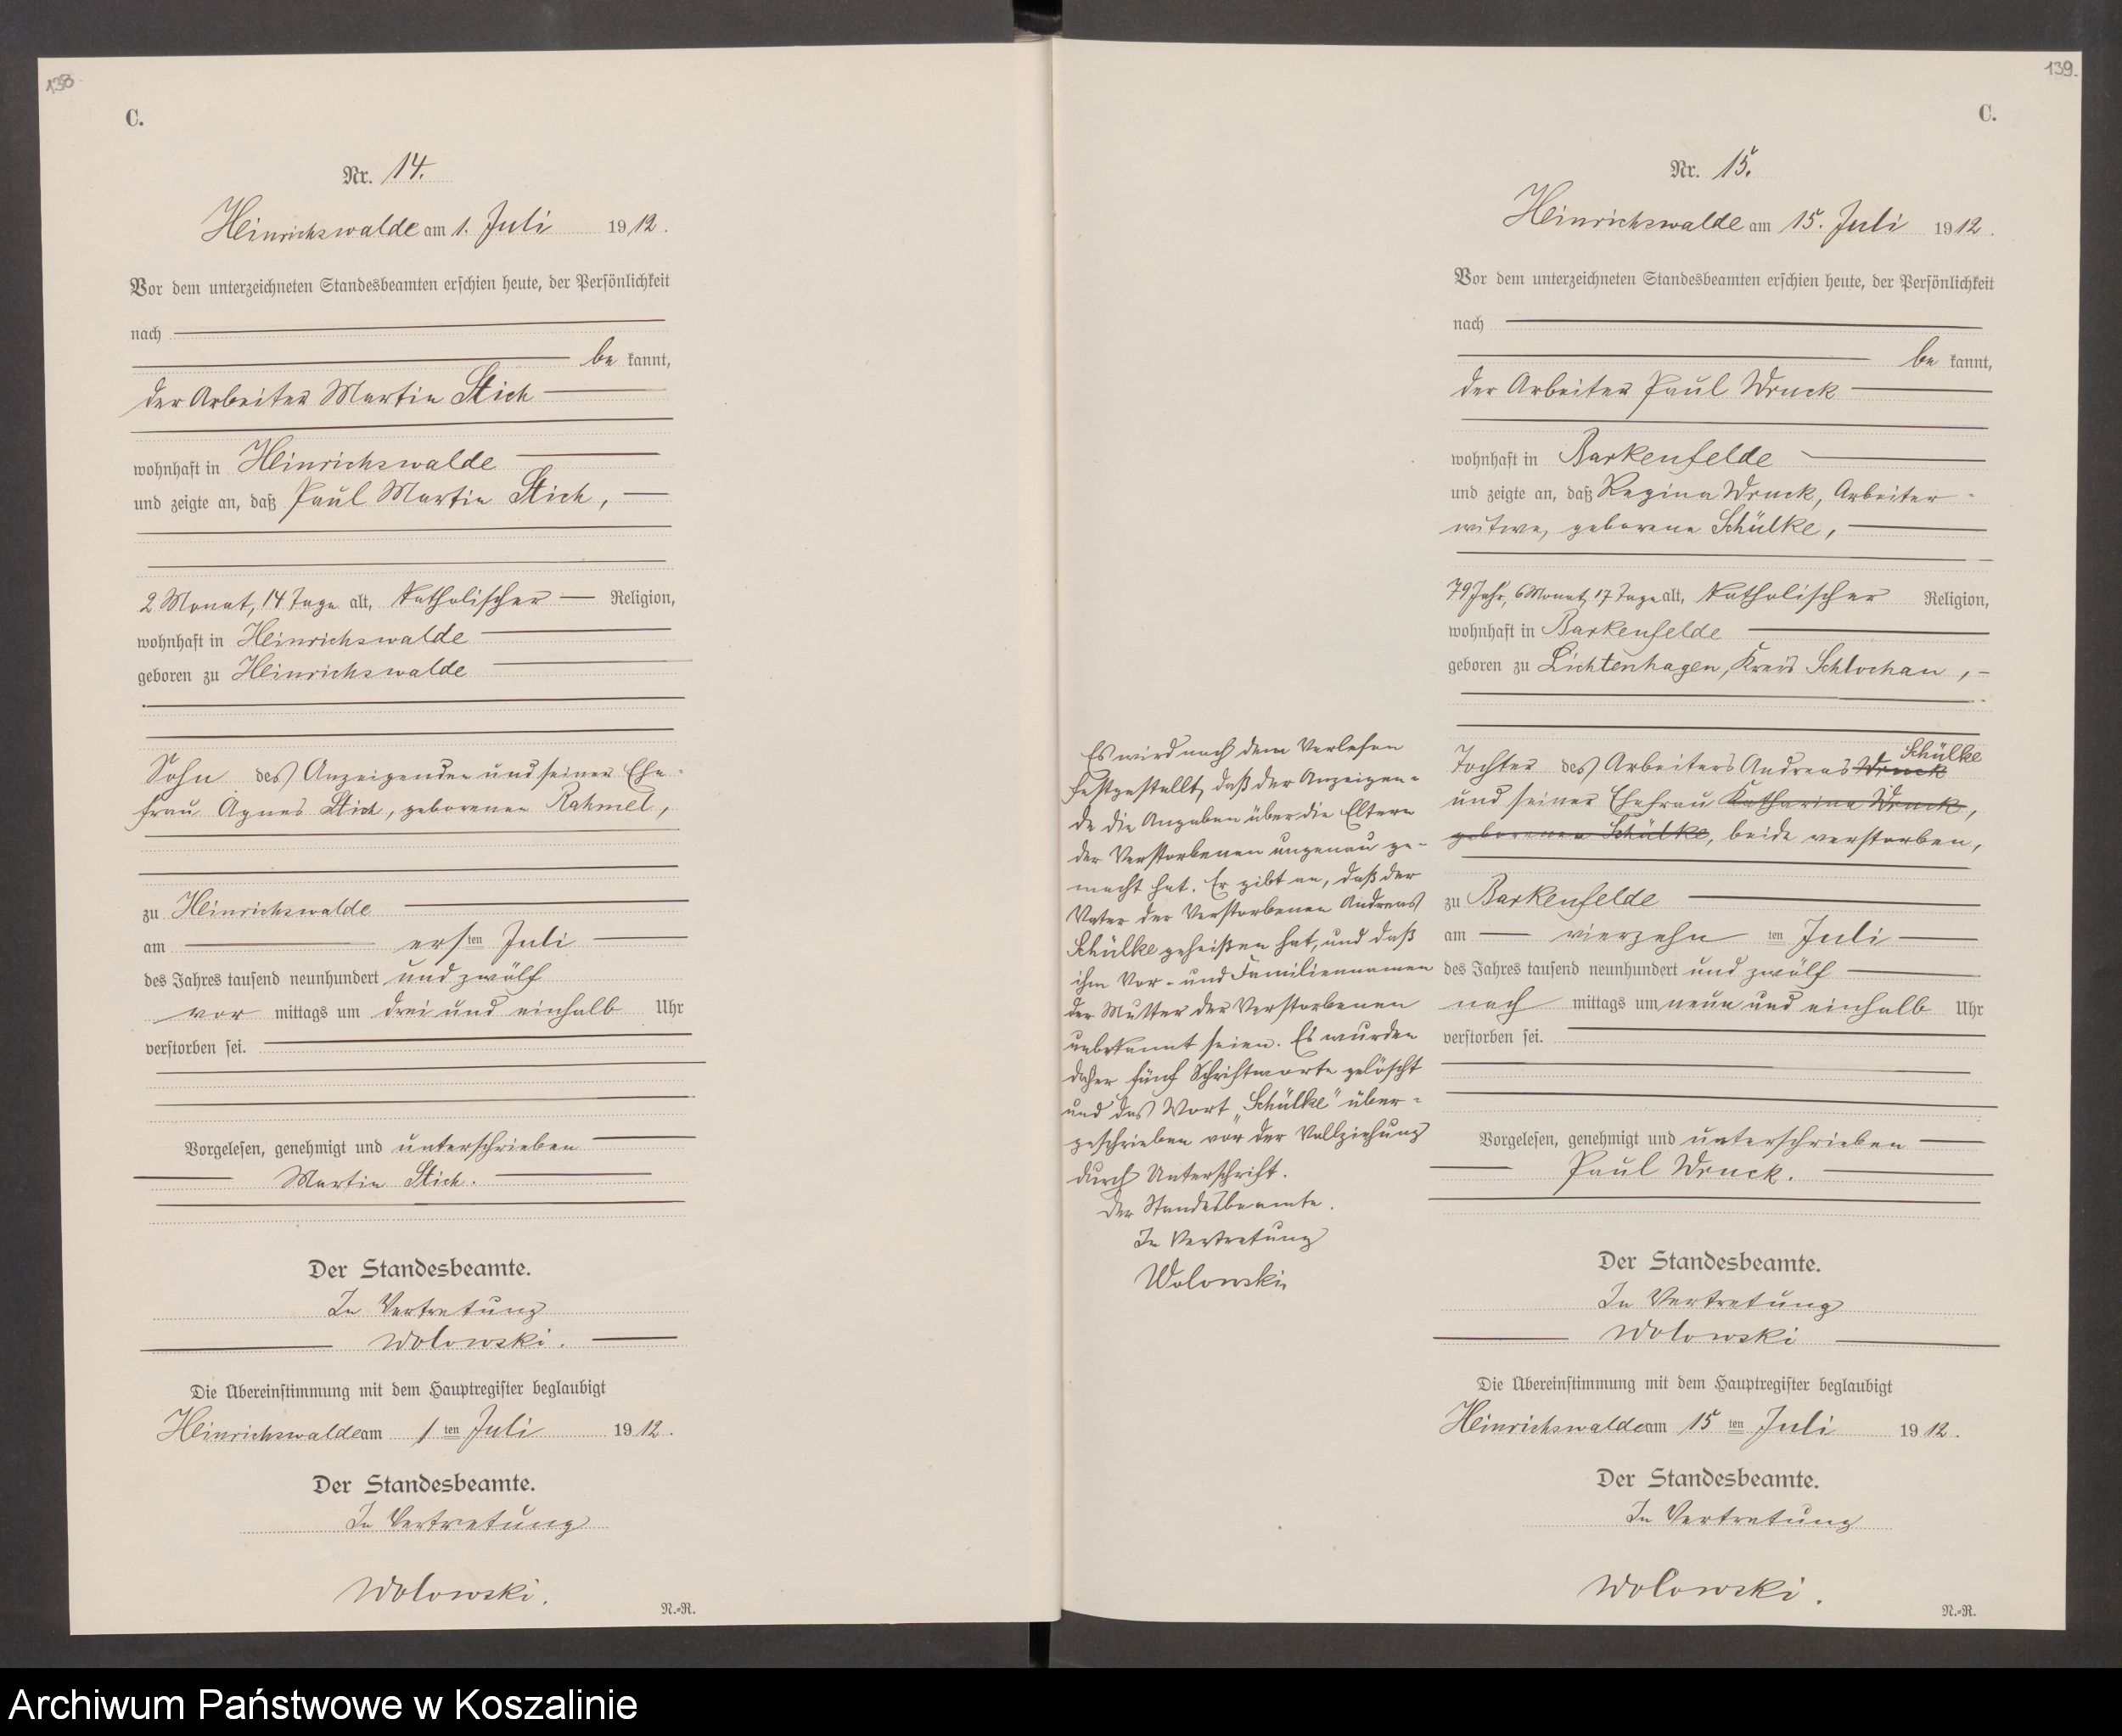 138
C.
Nr. 14.
Heinrichswalde am 1. Juli 1912.
Vor dem unterzeichneten Standesbeamten erschien heute, der Persönlichkeit
nach
be kannt,
der Arbeiter Martin Stich
wohnhaft in Heinrichswalde
und zeigte an, daß Paul Martin Stich,
2 Monat, 14 Tage alt, katholischer Religion,
wohnhaft in Heinrichswalde
geboren zu Heinrichswalde
Sohn des Anzeigenden und seiner Ehe-
frau Agnes Stich, geborenen Rahmel,
zu Heinrichswalde
am ersten Juli
des Jahres tausend neunhundert und zwölf
vor mittags um drei und einhalb Uhr
verstorben sei.
Vorgelesen, genehmigt und unterschrieben
Martin Stich.
Der Standesbeamte.
In Vertretung
Wolowski.
Die Übereinstimmung mit dem Hauptregister beglaubigt
Heinrichswalde am 1ten Juli 1912.
Der Standesbeamte.
In Vertretung
Wolowski.
N.=R.
139.
C.
Nr. 15.
Heinrichswalde am 15. Juli 1912.
Vor dem unterzeichneten Standesbeamten erschien heute, der Persönlichkeit
nach
be kannt,
der Arbeiter Paul Wruck
wohnhaft in Barkenfelde
und zeigte an, daß Regina Wruck, Arbeiter-
witwe, geborene Schülke,
79 Jahr, 6 Monat, 17 Tage alt, katholischer Religion,
wohnhaft in Barkenfelde
geboren zu Lichtenhagen, Kreis Schlochau,
Schülke
Tochter des Arbeiters Andreas Wruck
und seiner Ehefrau Katharina Wruck,
geborenen Schülke, beide verstorben,
zu Barkenfelde
am vierzehn ten Juli
des Jahres tausend neunhundert und zwölf
nach mittags um neun und einhalb Uhr
verstorben sei.
Vorgelesen, genehmigt und unterschrieben
Paul Wruck.
Der Standesbeamte.
In Vertretung
Wolowski
Die Übereinstimmung mit dem Hauptregister beglaubigt
Heinrichswalde am 15 ten Juli 1912.
Der Standesbeamte.
In Vertretung
Wolowski.
N.=R.
Es wird nach dem Verlesen
festgestellt, daß der Anzeigen-
de die Angaben über die Eltern
der Verstorbenen ungenau ge-
macht hat. Er gibt an, daß der
Vater der Verstorbenen Andreas
Schülke geheißen hat, und daß
ihm Vor- und Familiennamen
der Mutter der Verstorbenen
unbekannt seien. Es wurden
daher fünf Schriftworte gelöscht
und das Wort „Schülke" über-
geschrieben vor der Vollziehung
durch Unterschrift.
Der Standesbeamte.
In Vertretung
Wolowski
Archiwum Państwowe w Koszalinie